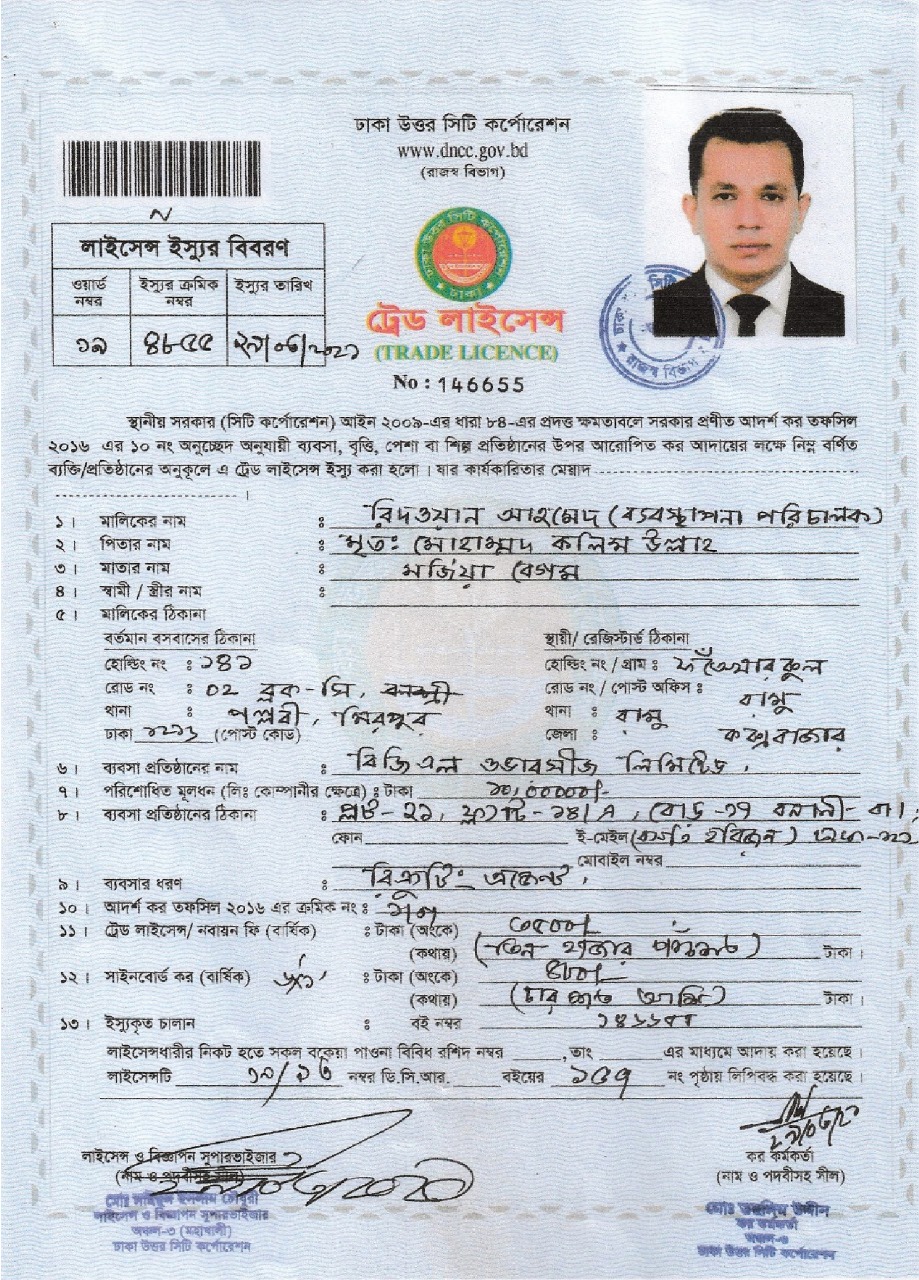 ঢাকা উত্তর সিটি কর্পোরেশন
www.dncc.gov.bd
(রাজস্ব বিভাগ)
লাইসেন্স ইস্যুর বিবরণ
ওয়ার্ড নম্বর
ইস্যুর ক্রমিক নম্বর
ইস্যুর তারিখ
১৯
৪৮৫৫
ট্রেড লাইসেন্স
(TRADE LICENCE)
No : 146655
স্থানীয় সরকার (সিটি কর্পোরেশন) আইন ২০০৯-এর ধারা ৮৪-এর প্রদত্ত ক্ষমতাবলে সরকার প্রণীত আদর্শ কর তফসিল
২০১৬ এর ১০ নং অনুচ্ছেদ অনুযায়ী ব্যবসা, বৃত্তি, পেশা বা শিল্প প্রতিষ্ঠানের উপর আরোপিত কর আদায়ের লক্ষে নিম্ন বর্ণিত
ব্যক্তি/প্রতিষ্ঠানের অনুকূলে এ ট্রেড লাইসেন্স ইস্যু করা হলো । যার কার্যকারিতার মেয়াদ
১। মালিকের নাম : রিদওয়ান আহমেদ (ব্যবস্থাপনা পরিচালক)
২। পিতার নাম : মৃতঃ মোহাম্মদ কলিম উল্লাহ
৩। মাতার নাম : মর্জিয়া বেগম
৪। স্বামী / স্ত্রীর নাম :
৫। মালিকের ঠিকানা
বর্তমান বসবাসের ঠিকানা
হোল্ডিং নং : ১৪১
রোড নং : ০২ ব্লক-সি,
থানা : পল্লবী, মিরপুর
ঢাকা ১২১৬ (পোস্ট কোড)
স্থায়ী/ রেজিস্টার্ড ঠিকানা
হোল্ডিং নং / গ্রাম :
রোড নং / পোস্ট অফিস : রামু
থানা : রামু
জেলা : কক্সবাজার
৬। ব্যবসা প্রতিষ্ঠানের নাম : বিজিএল ওভারসীজ লিমিটেড,
৭। পরিশোধিত মূলধন (লিঃ কোম্পানীর ক্ষেত্রে) : টাকা
৮। ব্যবসা প্রতিষ্ঠানের ঠিকানা : প্লট-২১, ফ্ল্যাট-১৪/A, রোড-১৭ বনানী- বা/
ফোন ই-মেইল
মোবাইল নম্বর
৯। ব্যবসার ধরণ : রিক্রুটিং এজেন্ট,
১০। আদর্শ কর তফসিল ২০১৬ এর ক্রমিক নং :
১১। ট্রেড লাইসেন্স/ নবায়ন ফি (বার্ষিক) : টাকা (অংকে) ৩৫০০/
(কথায়) (তিন হাজার পাঁচশত) টাকা।
১২। সাইনবোর্ড কর (বার্ষিক) : টাকা (অংকে) ৪৮০/
(কথায়) (চার শত আশি) টাকা।
১৩। ইস্যুকৃত চালান : বই নম্বর
লাইসেন্সধারীর নিকট হতে সকল বকেয়া পাওনা বিবিধ রশিদ নম্বর ,তাং এর মাধ্যমে আদায় করা হয়েছে।
লাইসেন্সটি নম্বর ডি.সি.আর. বইয়ের নং পৃষ্ঠায় লিপিবদ্ধ করা হয়েছে।
লাইসেন্স ও বিজ্ঞাপন সুপারভাইজার
(নাম ও পদবীসহ সীল)
লাইসেন্স ও বিজ্ঞাপন সুপারভাইজার
অঞ্চল-৩ (মহাখালী)
ঢাকা উত্তর সিটি কর্পোরেশন
কর কর্মকর্তা
(নাম ও পদবীসহ সীল)
কর কর্মকর্তা
অঞ্চল-৩
ঢাকা উত্তর সিটি কর্পোরেশন